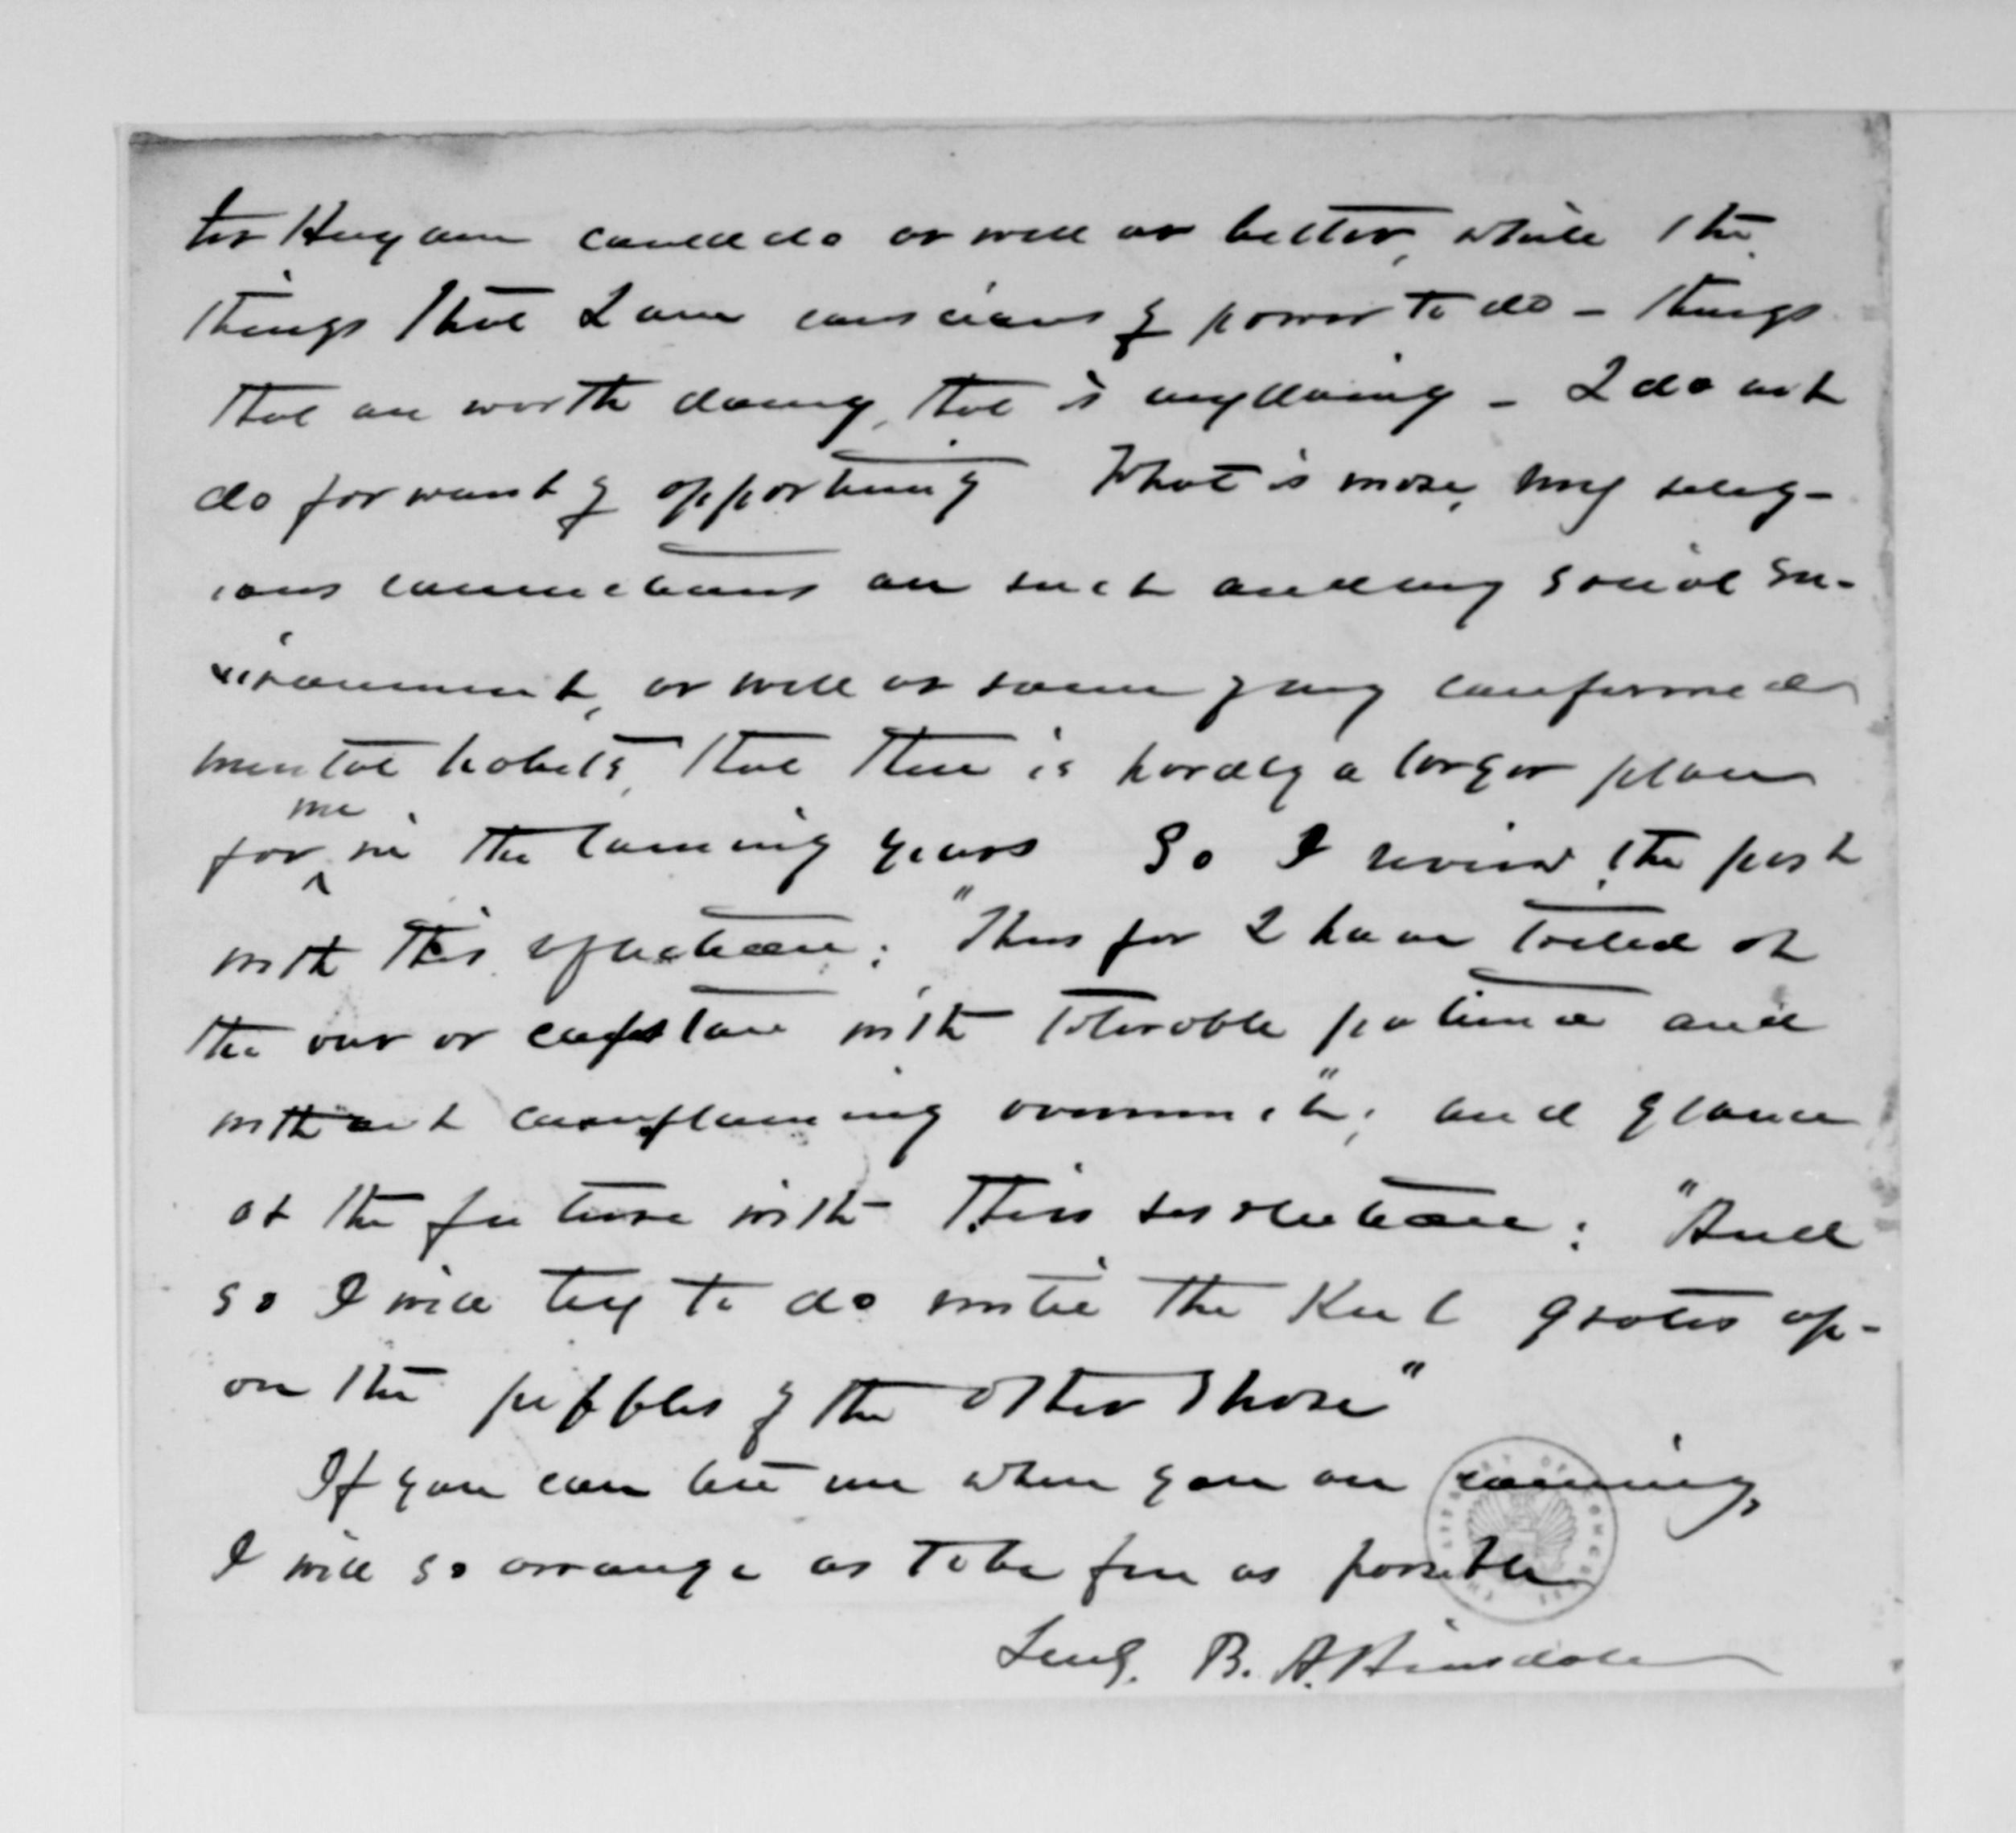 ter Hugam could do as well or better, while the
things that I am conscious of power to do – things
that are worth doing, that is anything – I do not
do for want of opportunity What is more, my relig-
ious connections are such and my social en-
vironment, as well as some of my confirmed
mental habits, that there is hardly a larger place
for me in the coming years So I review the past
with this reflection: "Thus far I have toiled at
the oar or capstan with tolerable patience and
without complaining overmuch"; and glance
at the future with this resolution: "And
so I will try to do until the Keel grates up-
on the pebbles of the other shore"
If you can let me when you are coming,
I will so arrange as to be free as possible
B. A. Hinsdale